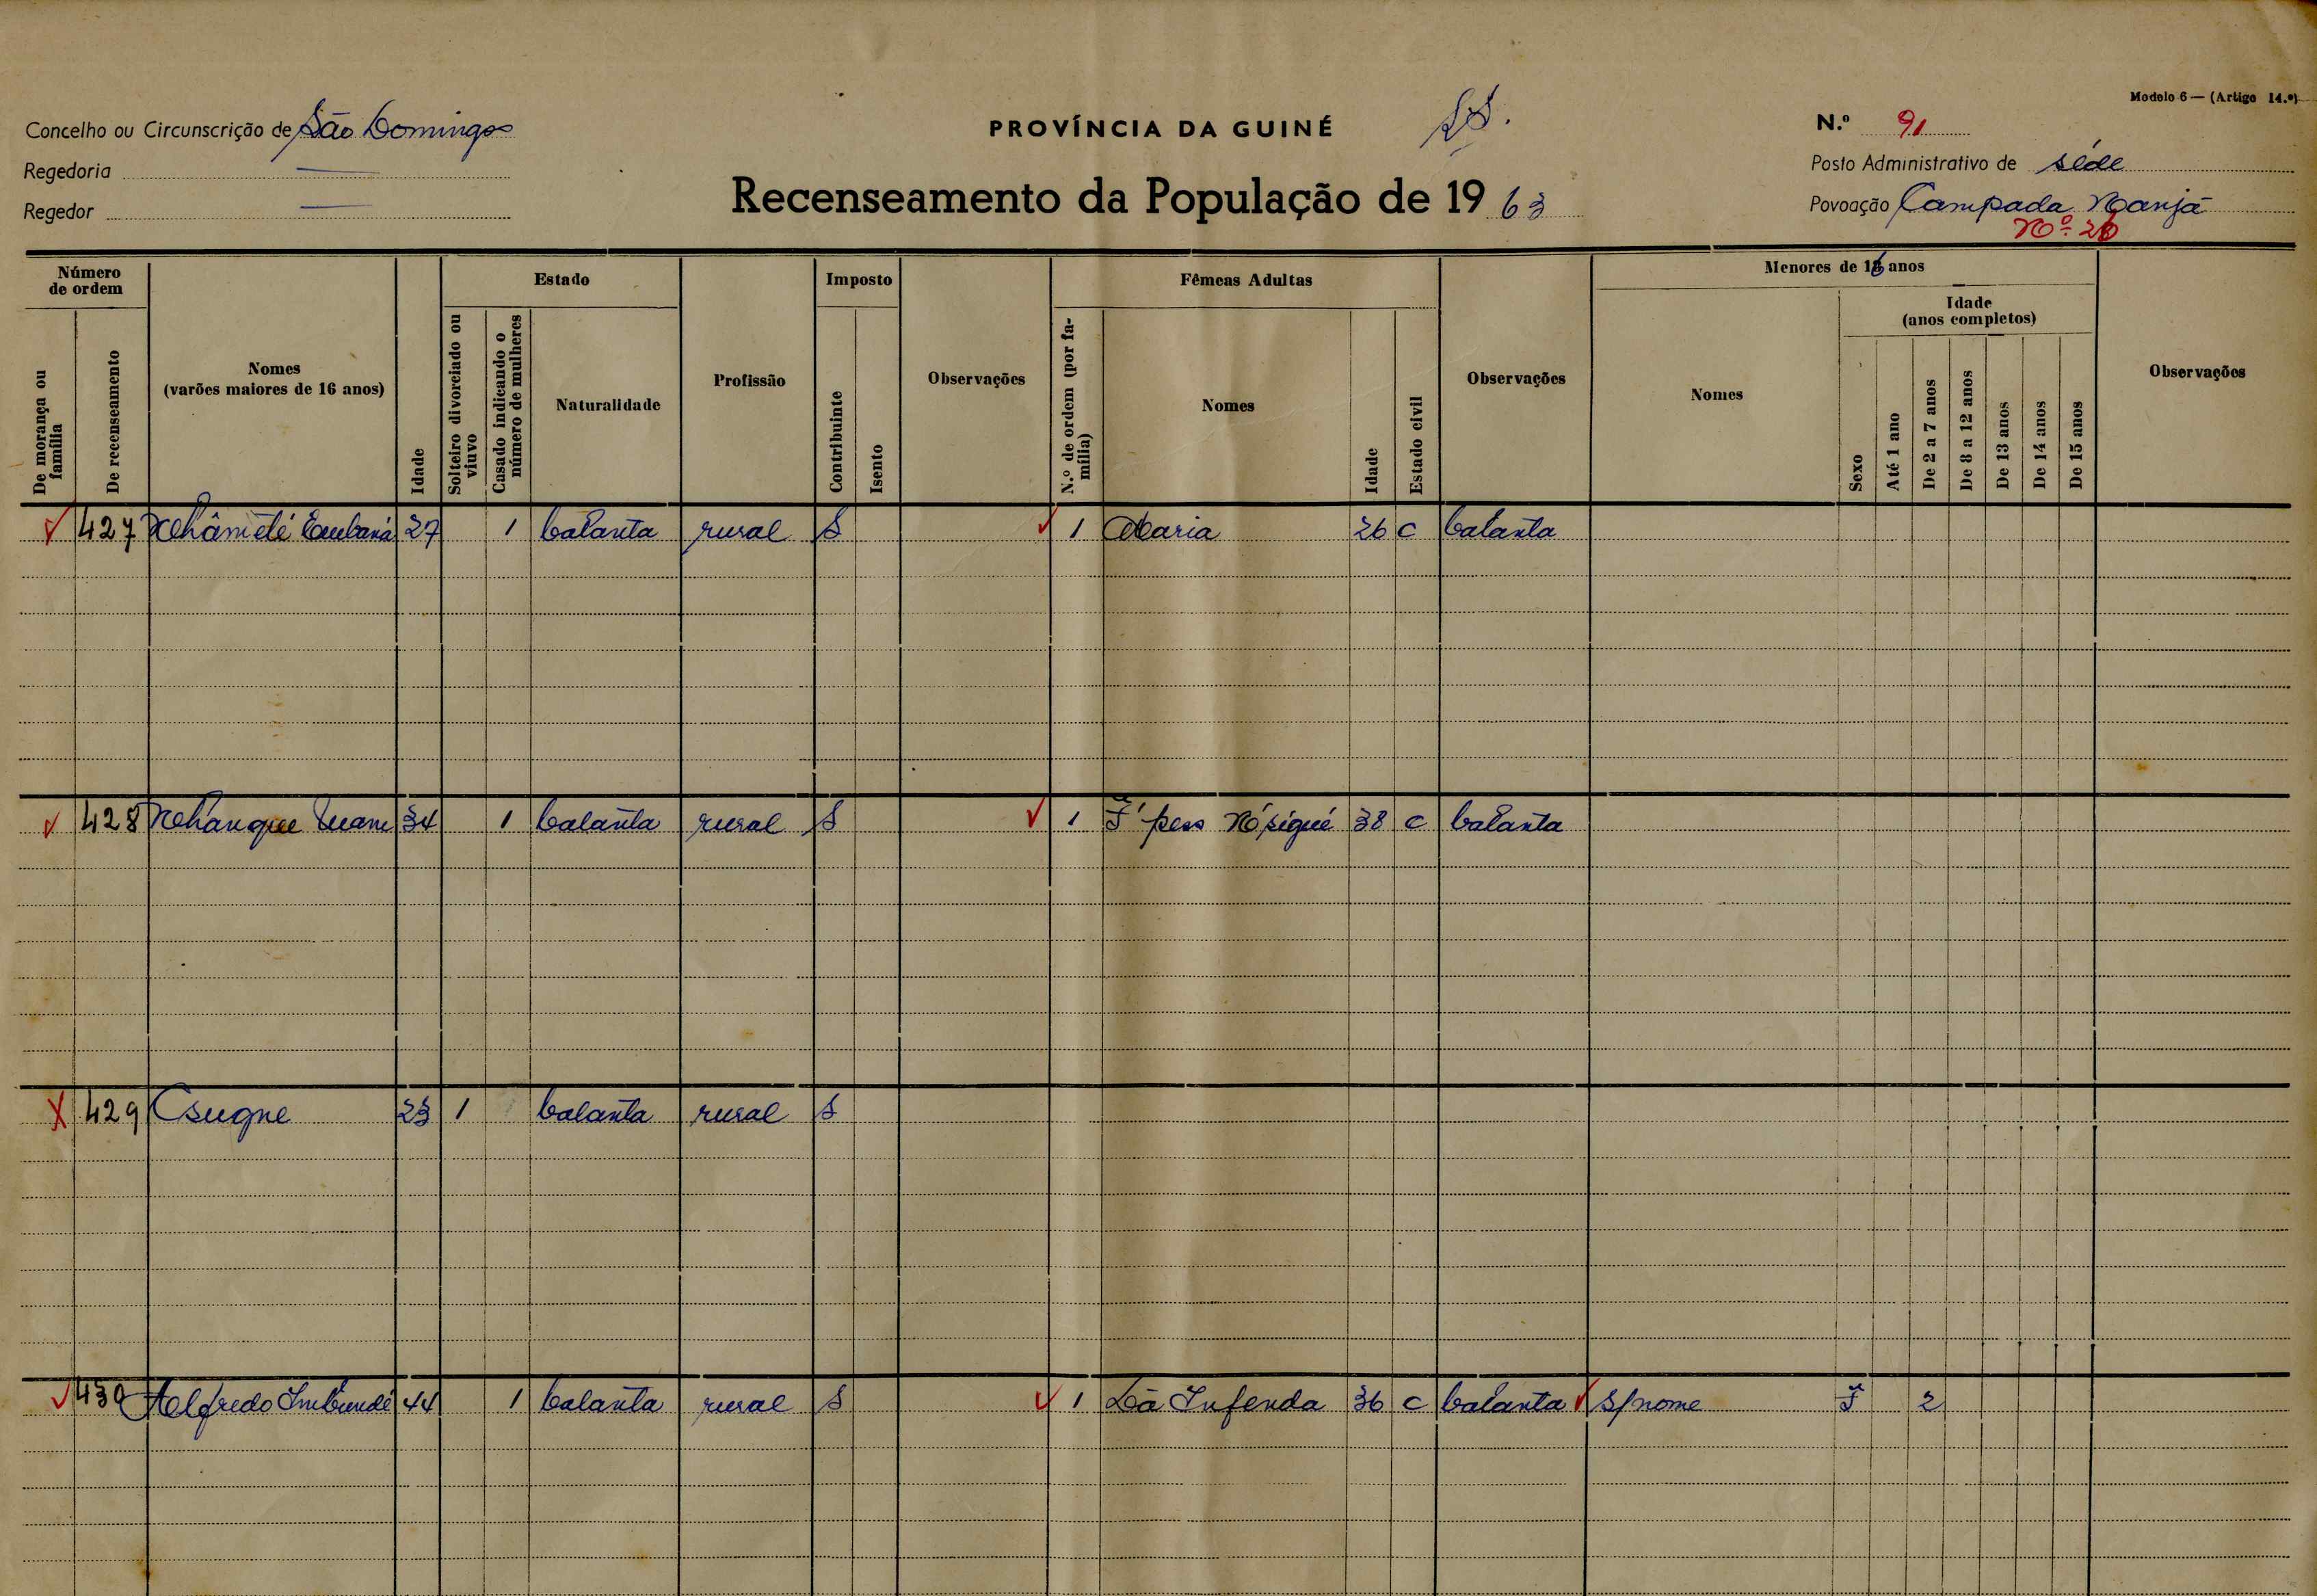 Modelo 6 — (Artigo 14.º)
Concelho ou Circunscrição de São Domingos
PROVÍNCIA DA GUINÉ
N.º 91
Regedoria —
Posto Administrativo de séde
Regedor —
Recenseamento da População de 1963
Povoação Campada Nanjã
Nº 26
Número de ordem
Estado
Imposto
Fêmeas Adultas
Menores de 16 anos
De morança ou família
De recenseamento
Nomes
(varões maiores de 16 anos)
Idade
Solteiro divorciado ou viuvo
Casado indicando o número de mulheres
Naturalidade
Profissão
Contribuinte
Isento
Observações
N.º de ordem (por família)
Nomes
Idade
Estado civil
Observações
Nomes
Sexo
Idade
(anos completos)
Até 1 ano
De 2 a 7 anos
De 8 a 12 anos
De 13 anos
De 14 anos
De 15 anos
Observações
427 27 1 balanta rural S 1 Maria 26 c balanta
428 34 1 balanta rural S 1 38 c balanta
429 23 1 balanta rural S
430 Alfredo 44 1 balanta rural S 1 Infenda 36 c balanta S/nome F 2